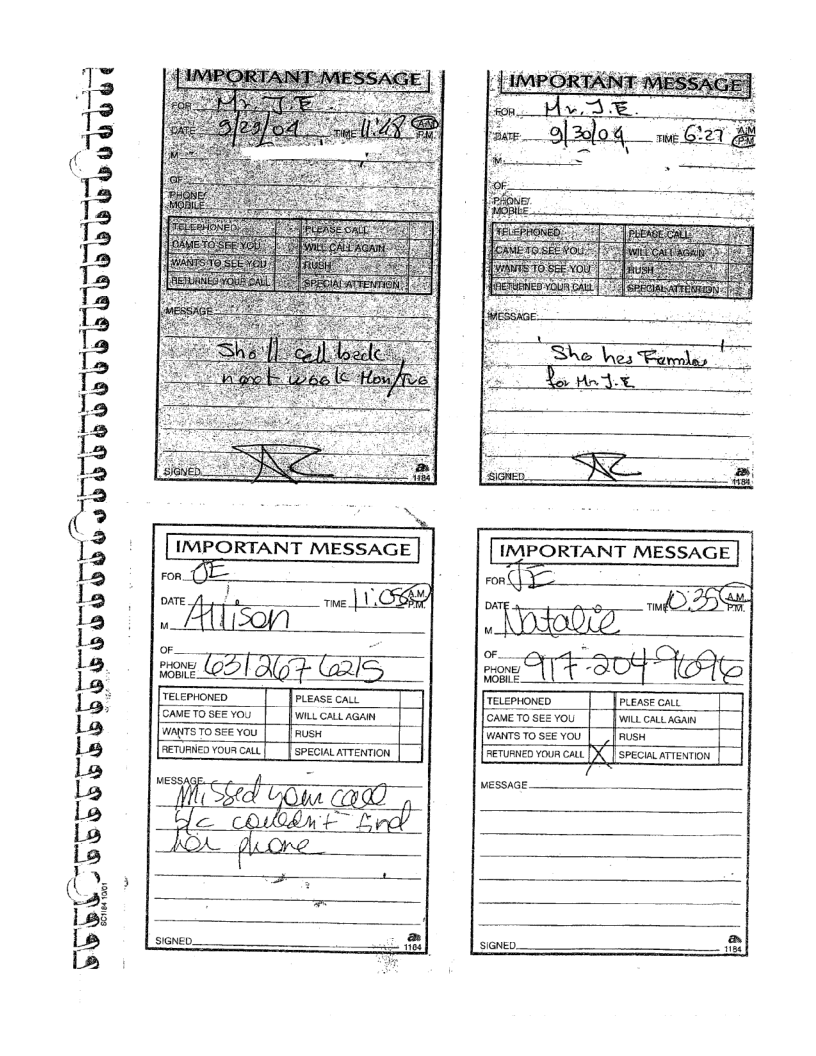 IMPORTANT MESSAGE
FOR Mr. J.E.
DATE 9/29/04 TIME 11:48 A.M. P.M.
M
OF
PHONE/
MOBILE
TELEPHONED PLEASE CALL
CAME TO SEE YOU WILL CALL AGAIN
WANTS TO SEE YOU RUSH
RETURNED YOUR CALL SPECIAL ATTENTION
MESSAGE
She'll call back
next week Mon/Tue
SIGNED
1184
IMPORTANT MESSAGE
FOR Mr. J.E.
DATE 9/30/04 TIME 6:27 A.M. P.M.
M
OF
PHONE/
MOBILE
TELEPHONED PLEASE CALL
CAME TO SEE YOU WILL CALL AGAIN
WANTS TO SEE YOU RUSH
RETURNED YOUR CALL SPECIAL ATTENTION
MESSAGE
She has
for Mr J.E
SIGNED
1184
IMPORTANT MESSAGE
FOR JE
DATE TIME 11:05 A.M. P.M.
M Allison
OF
PHONE/
MOBILE 631 267 6215
TELEPHONED PLEASE CALL
CAME TO SEE YOU WILL CALL AGAIN
WANTS TO SEE YOU RUSH
RETURNED YOUR CALL SPECIAL ATTENTION
MESSAGE
Missed your call
b/c couldn't find
her phone
SIGNED
1184
IMPORTANT MESSAGE
FOR JE
DATE TIME 10:35 A.M. P.M.
M Natalie
OF
PHONE/
MOBILE 917-204-9696
TELEPHONED PLEASE CALL
CAME TO SEE YOU WILL CALL AGAIN
WANTS TO SEE YOU RUSH
RETURNED YOUR CALL X SPECIAL ATTENTION
MESSAGE
SIGNED
1184
SC1184 10/01